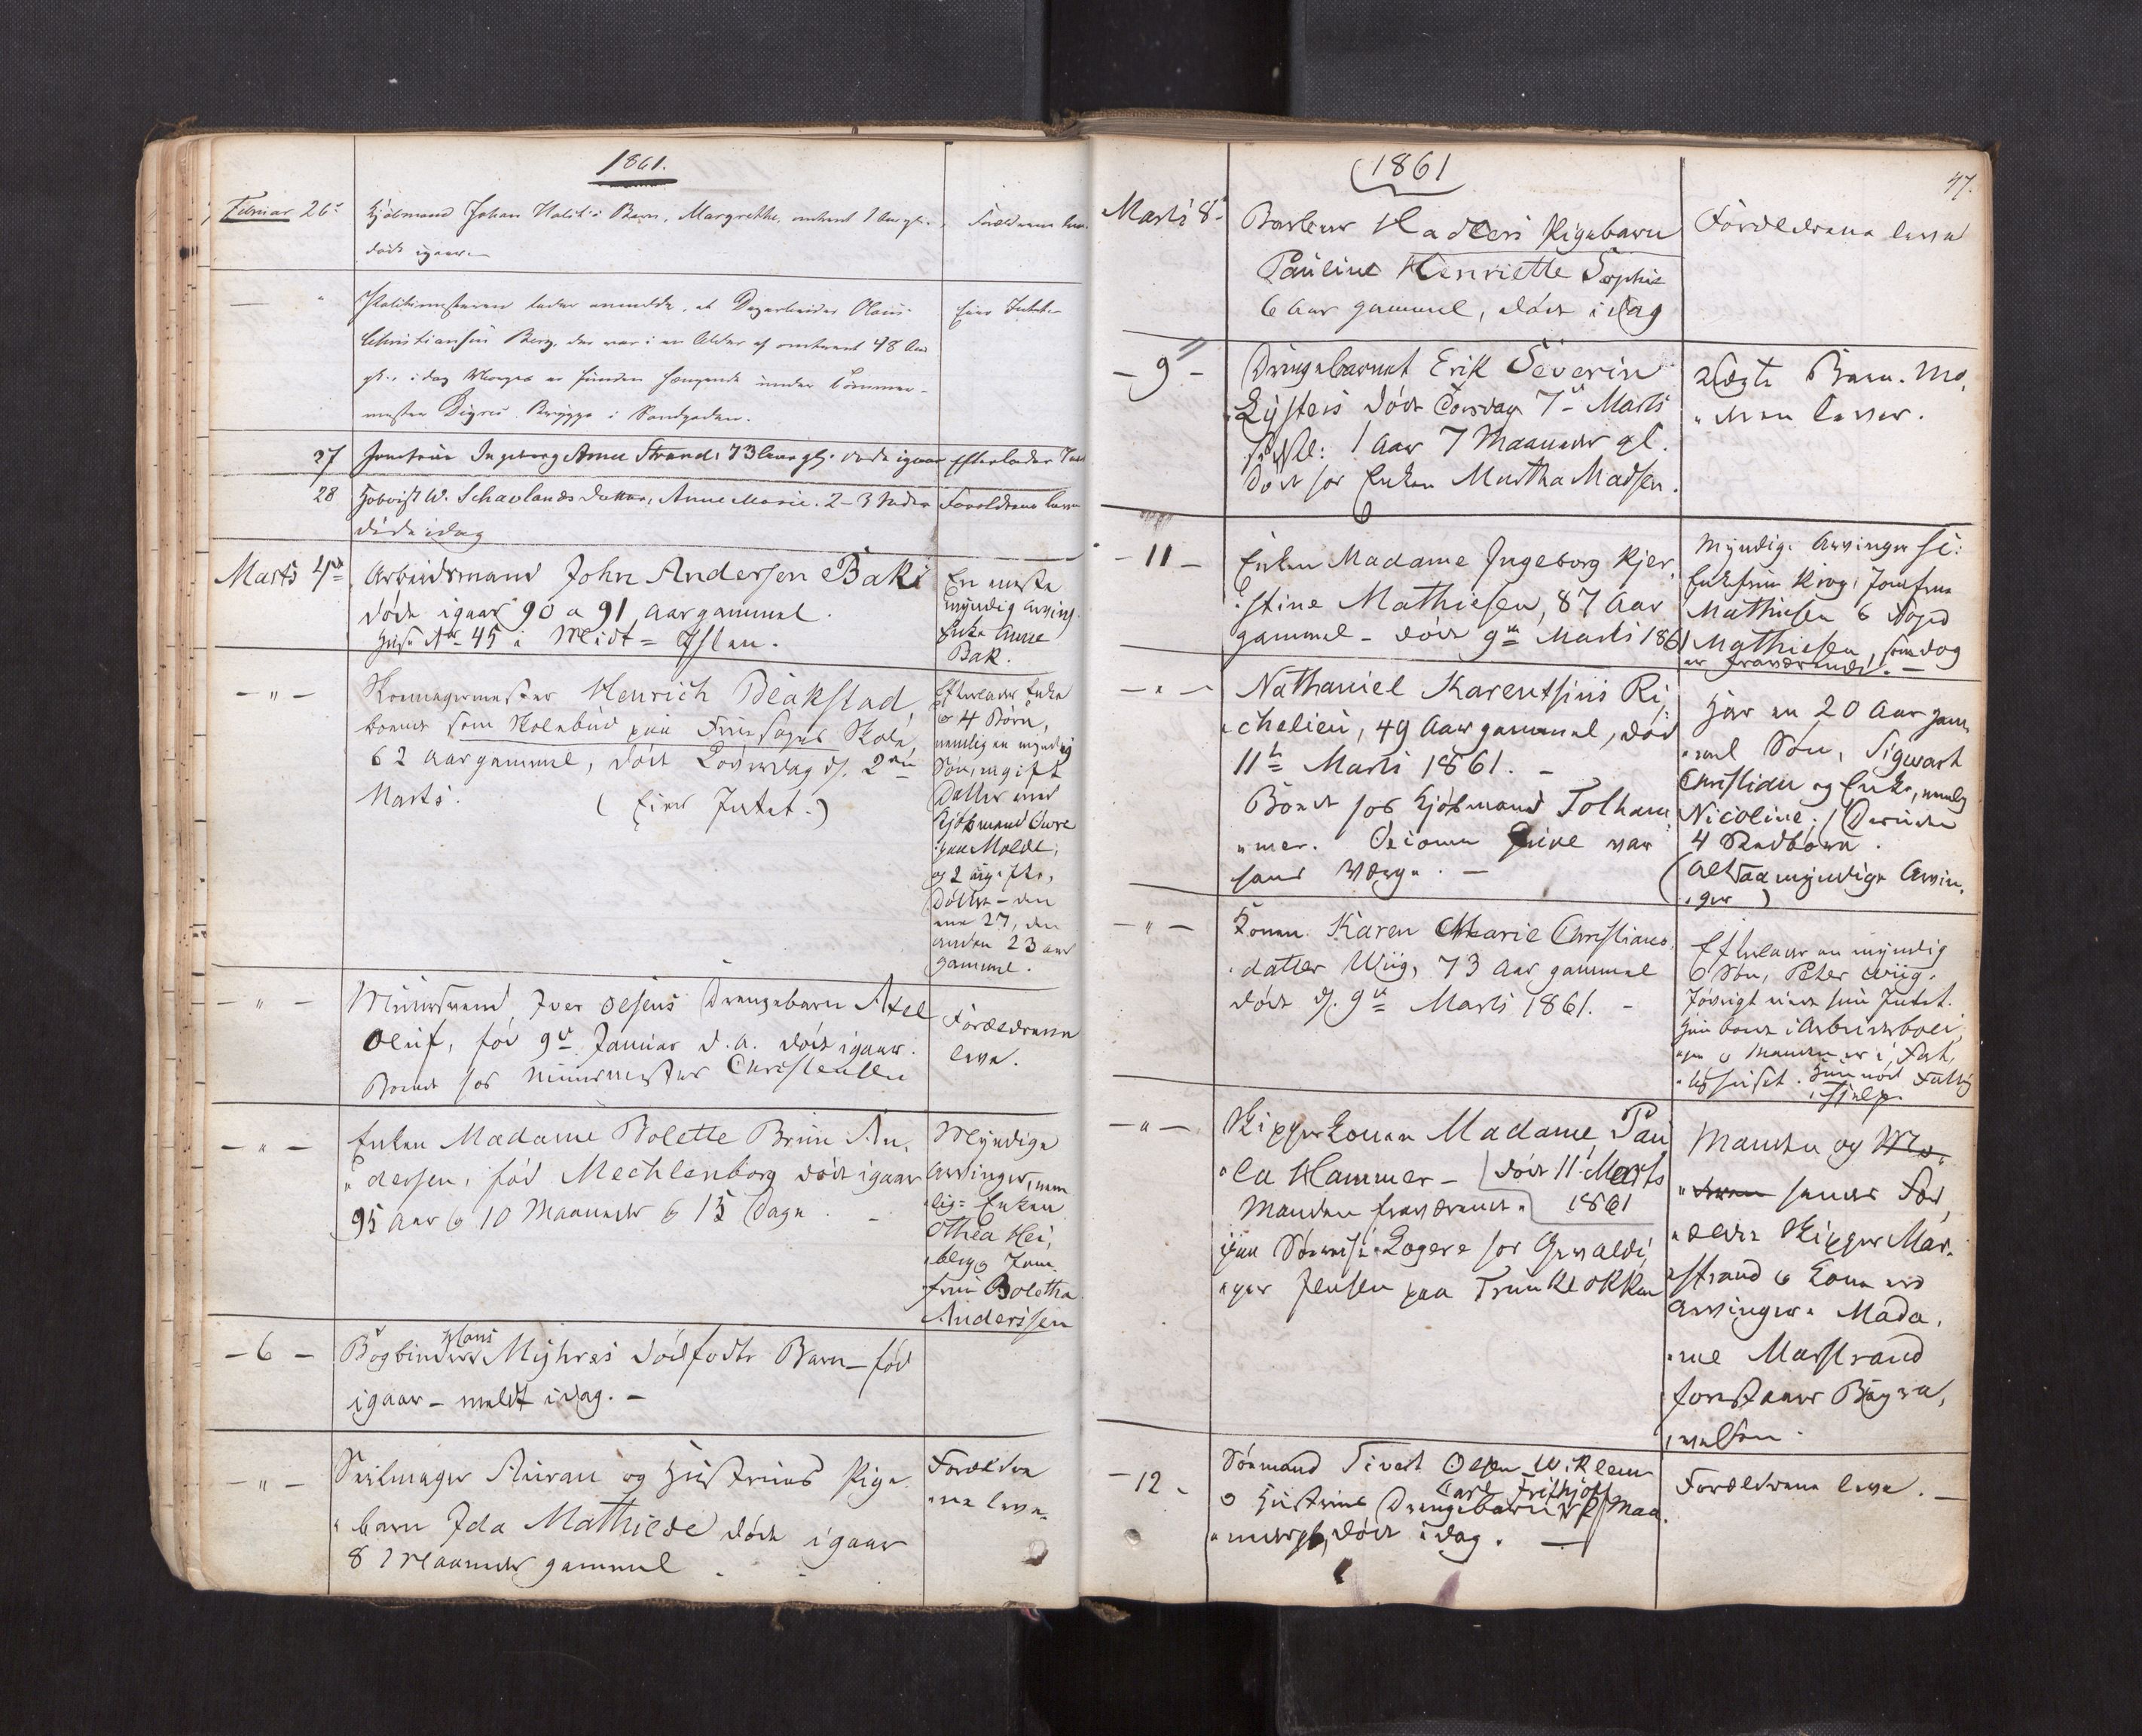 1861.
Februar 26de
Kjöbmand Johan Barn, Margrethe, omtrent 1 Aar gl.
döde igaar.
Forældrene leve.
— "
Politimesteren lader anmelde, at Dagarbeider Olaus
Christiansen Berg, der var i en Alder af omtrent 48 Aar
gl., idag Morges er funden hængende under Tömmer-
mester Brygge i Sandgaden.
Eier Intet.
27
Jomfrue Ingeborg Anne Strand, 73 Aar gl. döde igaar
Efterlader Intet
28
W. Schavlands datter, Anne Marie. 2-3
döde idag
Forældrene leve
Marts 4de
Arbeidsmand John Andersen Bak
döde igaar 90 a 91 Aar gammel.
Huset No 45 i Midt=Ihlen.
En
myndig Arving.
Enke Anne
Bak.
— " —
Henrich Beakstad,
boende som Skolebud paa Skole,
62 Aar gammel, döde Löverdag d. 2den
Marts. (Eier Intet.)
Efterlader Enke
& 4 Börn,
nemlig en myndig
Sön, en gift
Datter med
Kjöbmand Owre
paa Molde,
og 2 ugifte
Döttre - den
ene 27, den
anden 23 Aar
gamml.
— " —
Muursvend Iver Olsens Drengebarn Axel
Oluf, föd 9de Januar d. A. döde igaar.
Boende hos Muurmester Christensen
Forældrene
leve.
— " —
Enken Madame Bolette Brun An-
dersen, föd Mechlenborg döde igaar
95 Aar & 10 Maaneder & 15 Dage.
Myndige
Arvinger, nem
lig: Enken
Othea Hei,
berg & Jom-
frue Boletha
Anderssen
— 6 —
Hans
Bogbinder Myhres dödfödte Barn - föd
igaar - meldt idag. -
— " —
Seilmager Auran og Hustrues Pige-
barn Ida Mathilde döde igaar
8 Maaneder gammel
Forældre
ne leve.
1861
47.
Marts 8de
Pigebarn
Pauline Henriette Sophie
6 Aar gammel, döde idag
Forældrene leve
— 9 —
Drengebarnet Erik Severin
döde Torsdag 7de Marts
1 Aar 7 Maaneder gl.
Döde hos Enken Martha Madsen.
uægte Barn. Mo,
deren lever.
— 11 —
Enken Madame Ingeborg Kjer,
stine Mathiesen, 87 Aar
gammel - döde 9de Marts 1861
Myndige Arvinger
Enkefrue Krog, Jomfrue
Mathiesen &
Mathiesen, som dog
er fraværende. -
— " —
Nathaniel Karentsius Ri,
chelieu, 49 Aar gammel, död
11te Marts 1861. -
Boende hos Kjöbmand Tolham,
mer. var
hans Værge. -
Har en 20 Aar gam
mel Sön, Sigwart
Christian og Enke, nemlig
Nicoline,
4 Stedbörn.
(Altsaa myndige Arvin,
ger)
— " —
Konen Karen Marie Christians,
datter Wiig, 73 Aar gammel
döde d. 9de Marts 1861. -
Efterlader en myndig
Sön, Peter Wiig,
Iövrigt Intet.
Hun boede i
& Manden er i Fat,
tighuset. Hun nöd Fattig
hjelp.
— " —
Skipperkonen Madame Pau
la Hammer - döde 11te Marts
1861
Manden fraværende.
Logere hos
Jensen paa
Manden og Mo-
deren hendes For,
ældre Skipper Mar-
strand & Kone ere
Arvinger. Mada,
me Marstrand
forestaaer Begra,
velsen.
— 12 —
Sömand Sivert Olsen Wiklem
Carl Frithjof
& Hustrues Drengebarn 2 Maa
neder gl, döde idag. —
Forældrene leve. —